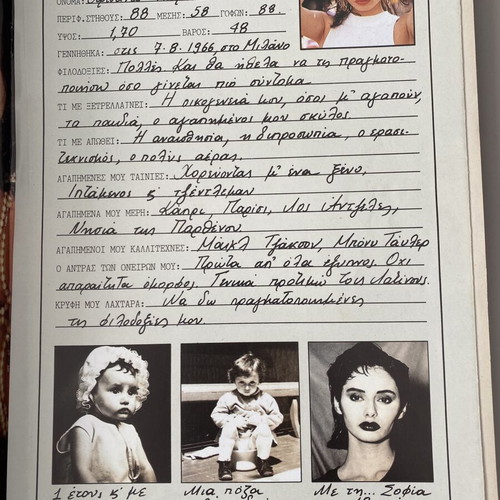 ΟΝΟΜΑ:
ΠΕΡΙΦ.ΣΤΗΘΟΥΣ: 88 ΜΕΣΗΣ: 58 ΓΟΦΩΝ: 88.
ΥΨΟΣ: 1,70 ΒΑΡΟΣ: 48
ΓΕΝΝΗΘΗΚΑ: στις 7-8-1966, στο Μιλάνο
ΦΙΛΟΔΟΞΙΕΣ: Πολλές και θα ήθελα να τις πραγματο-
ποιήσω όσο γίνεται πιο σύντομα.
ΤΙ ΜΕ ΞΕΤΡΕΛΛΑΙΝΕΙ: Η οικογένειά μου, όσοι μ' αγαπούν,
τα παιδιά, ο αγαπημένος μου σκύλος.
ΤΙ ΜΕ ΑΠΩΘΕΙ: Η αναισθησία, η διπροσωπία, ο ερασι-
τεχνισμός, ο πολύς αέρας.
ΑΓΑΠΗΜΕΝΕΣ ΜΟΥ ΤΑΙΝΙΕΣ: Χορεύοντας μ' ένα ξένο,
Ιπτάμενος κ' τζέντλεμαν
ΑΓΑΠΗΜΕΝΑ ΜΟΥ ΜΕΡΗ: Κάπρι, Παρίσι, Λος Άντζελες,
Νησιά της Παρθένου.
ΑΓΑΠΗΜΕΝΟΙ ΜΟΥ ΚΑΛΛΙΤΕΧΝΕΣ: Μάικλ Τζάκσον, Μπόνυ Τάυλερ
Ο ΑΝΤΡΑΣ ΤΩΝ ΟΝΕΙΡΩΝ ΜΟΥ: Πρώτα απ' όλα έξυπνος. Όχι
απαραίτητα όμορφος. Γενικά προτιμώ τους Λατίνους.
ΚΡΥΦΗ ΜΟΥ ΛΑΧΤΑΡΑ: Να δω πραγματοποιημένες
τις φιλοδοξίες μου.
1 έτους κ' με
Μια πόζα
Με τη... Σοφία